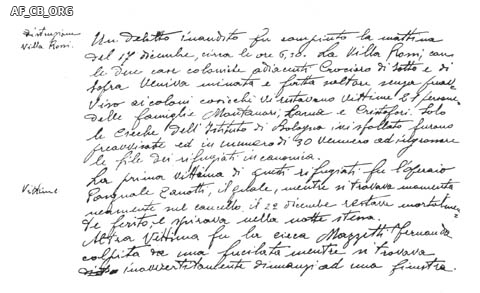 AF_CB_ORG
Distruzione
Villa Rossi.
Un delitto inaudito fu compiuto la mattina
del 17 dicembre, circa le ore 6,30. La Villa Rossi, con
le due case coloniche adiacenti Crociaro di Sotto e di
Sopra veniva minata e fatta saltare senza preav=
viso ai coloni cosicchè vi restavano vittime 21 persone
delle famiglie Montanari, Lanna e Cristofori. Solo
le cieche dell'Istituto di Bologna ivi sfollato furono
preavvisate ed in numero di 30 vennero ad ingrossare
le file dei rifugiati in canonica.
Vittime
La prima vittima di questi rifugiati fu l'operaio
Pasquale Zanotti, il quale, mentre si trovava momenta
neamente sul cancello, il 22 dicembre restava mortalmen=
te ferito, e spirava nella notte stessa.
Altra vittima fu la cieca Mazzetti Fernanda
colpita da una fucilata mentre si trovava
inavvertitamente dinnanzi ad una finestra.